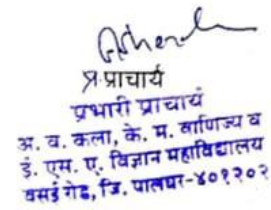 प्र.प्राचार्य
प्रभारी प्राचार्य
अ. व. कला, के. म. वाणिज्य व
ई. एस. ए. विज्ञान महाविद्यालय
वसई रोड, जि. पालघर-४०१२०२